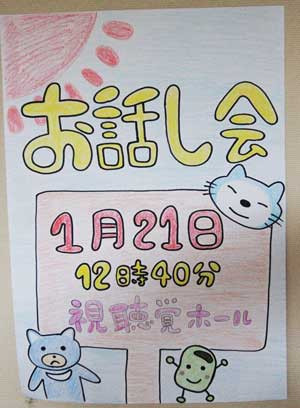 お話し会
1月21日
12時40分
視聴覚ホール